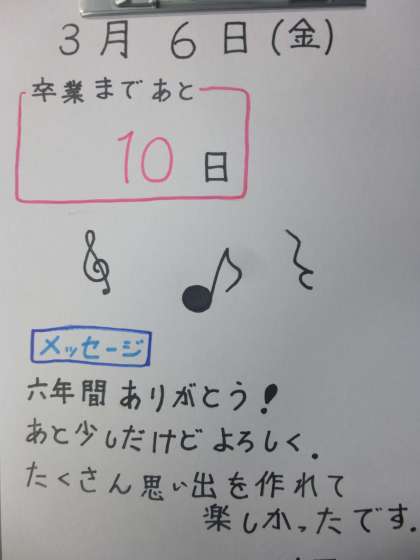 3月 6日(金)
卒業まであと
10日
メッセージ
六年間ありがとう！
あと少しだけどよろしく.
たくさん思い出を作れて
楽しかったです.